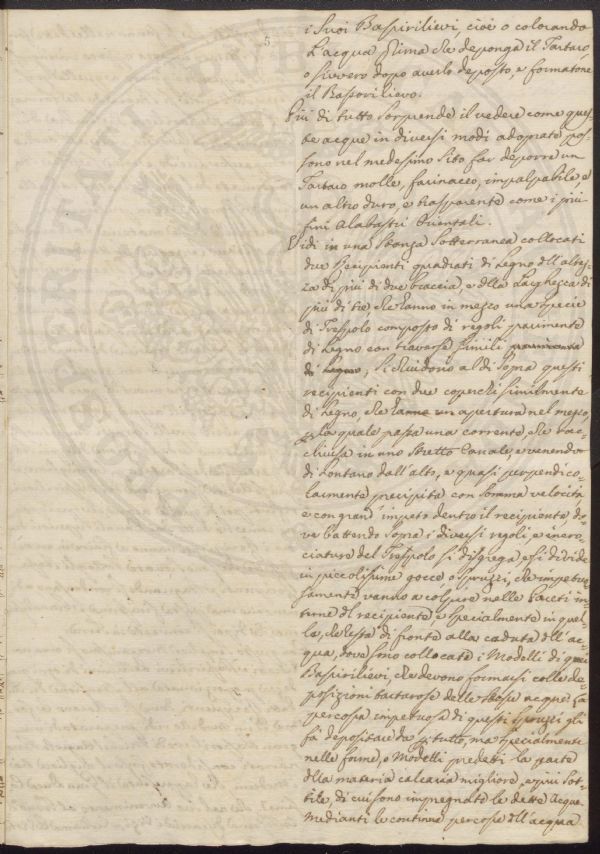 5
i Suoi Bassirilievi, cioè o colorando
L'acqua prima che deponga il Tartaro,
o sivvero dopo averlo deposto, e formatone
il Bassorilievo.
Più di tutto sorprende il vedere come ques-
te acque in diversi modi adoprate pos-
sono nel medesimo Sito far deporre un
Tartaro molle, farinaceo, impalpabile, e
un altro duro, e trasparente come i più
fini Alabastri Orientali.
Vidi in una Stanza Sotterranea collocati
due Recipienti quadrati di Legno dll'altez-
za di più di due braccia, e dlla Larghezza di
più di tre che hanno in mezzo una Specie
di Trespolo composto di regoli parimente
di Legno con traverse simili parimente
di Legno, si chiudono al di Sopra questi
recipienti con due coperchi similmente
di Legno, che hanno un apertura nel mezzo
p la quale passa una corrente, che rac-
chiusa in uno Stretto Canale, e venendo
di Lontano dall'alto, e quasi perpendico-
larmente precipita con somma velocità
e con grand'impeto dentro il recipiente, do-
ve battendo Sopra i diversi regoli, e incro-
ciature del Trespolo si disgrega, e si divide
in piccolissime gocce, o Spruzzi, che impetuo-
samente vanno a colpire nelle faceti in-
terne dl recipiente, e Specialmente in quel-
la, che resta di fronte alla caduta dll'ac-
qua, dove sono collocati i Modelli di quei
Bassirilievi, che devono formarsi colle de-
posizioni tartarose delle stesse acque. La
percossa impetuosa di questi Spruzzi gli
fà depositare da p tutto, ma Specialmente
nelle forme, o Modelli predetti la parte
dlla materia calcaria migliore, e più sot-
tile, di cui sono impregnate le dette Acque.
Medianti le continue percosse dll'acqua